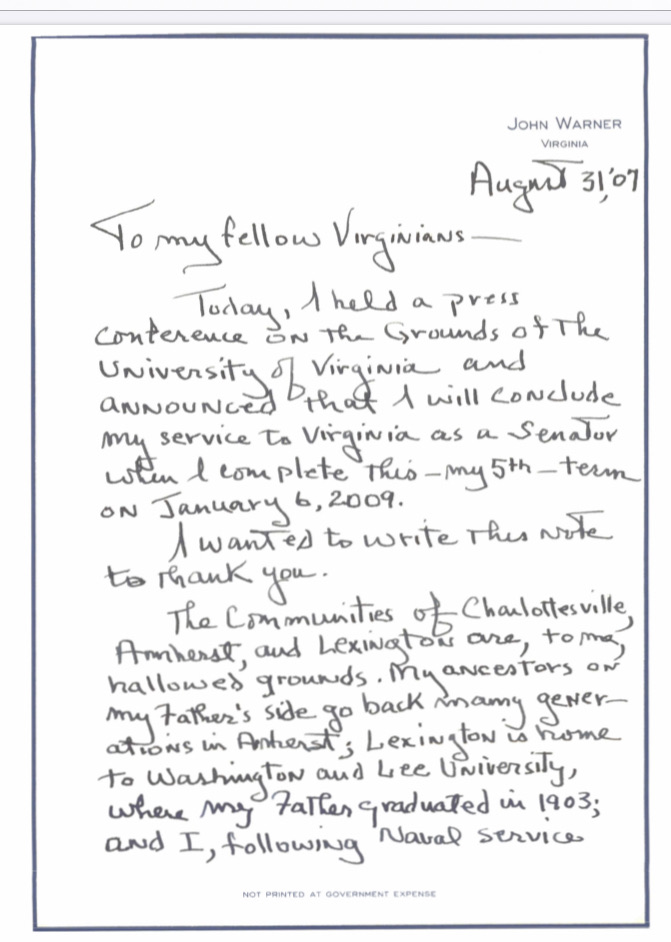 JOHN WARNER
VIRGINIA
August 31, '07
To my fellow Virginians —
Today, I held a press
conference on the Grounds of The
University of Virginia and
announced that I will conclude
my service to Virginia as a Senator
when I complete this – my 5th – term
on January 6, 2009.
I wanted to write this note
to thank you.
The Communities of Charlottesville,
Amherst, and Lexington are, to me,
hallowed grounds. My ancestors on
my Father's side go back many gener–
ations in Amherst; Lexington is home
to Washington and Lee University,
where my Father graduated in 1903;
and I, following Naval service
NOT PRINTED AT GOVERNMENT EXPENSE